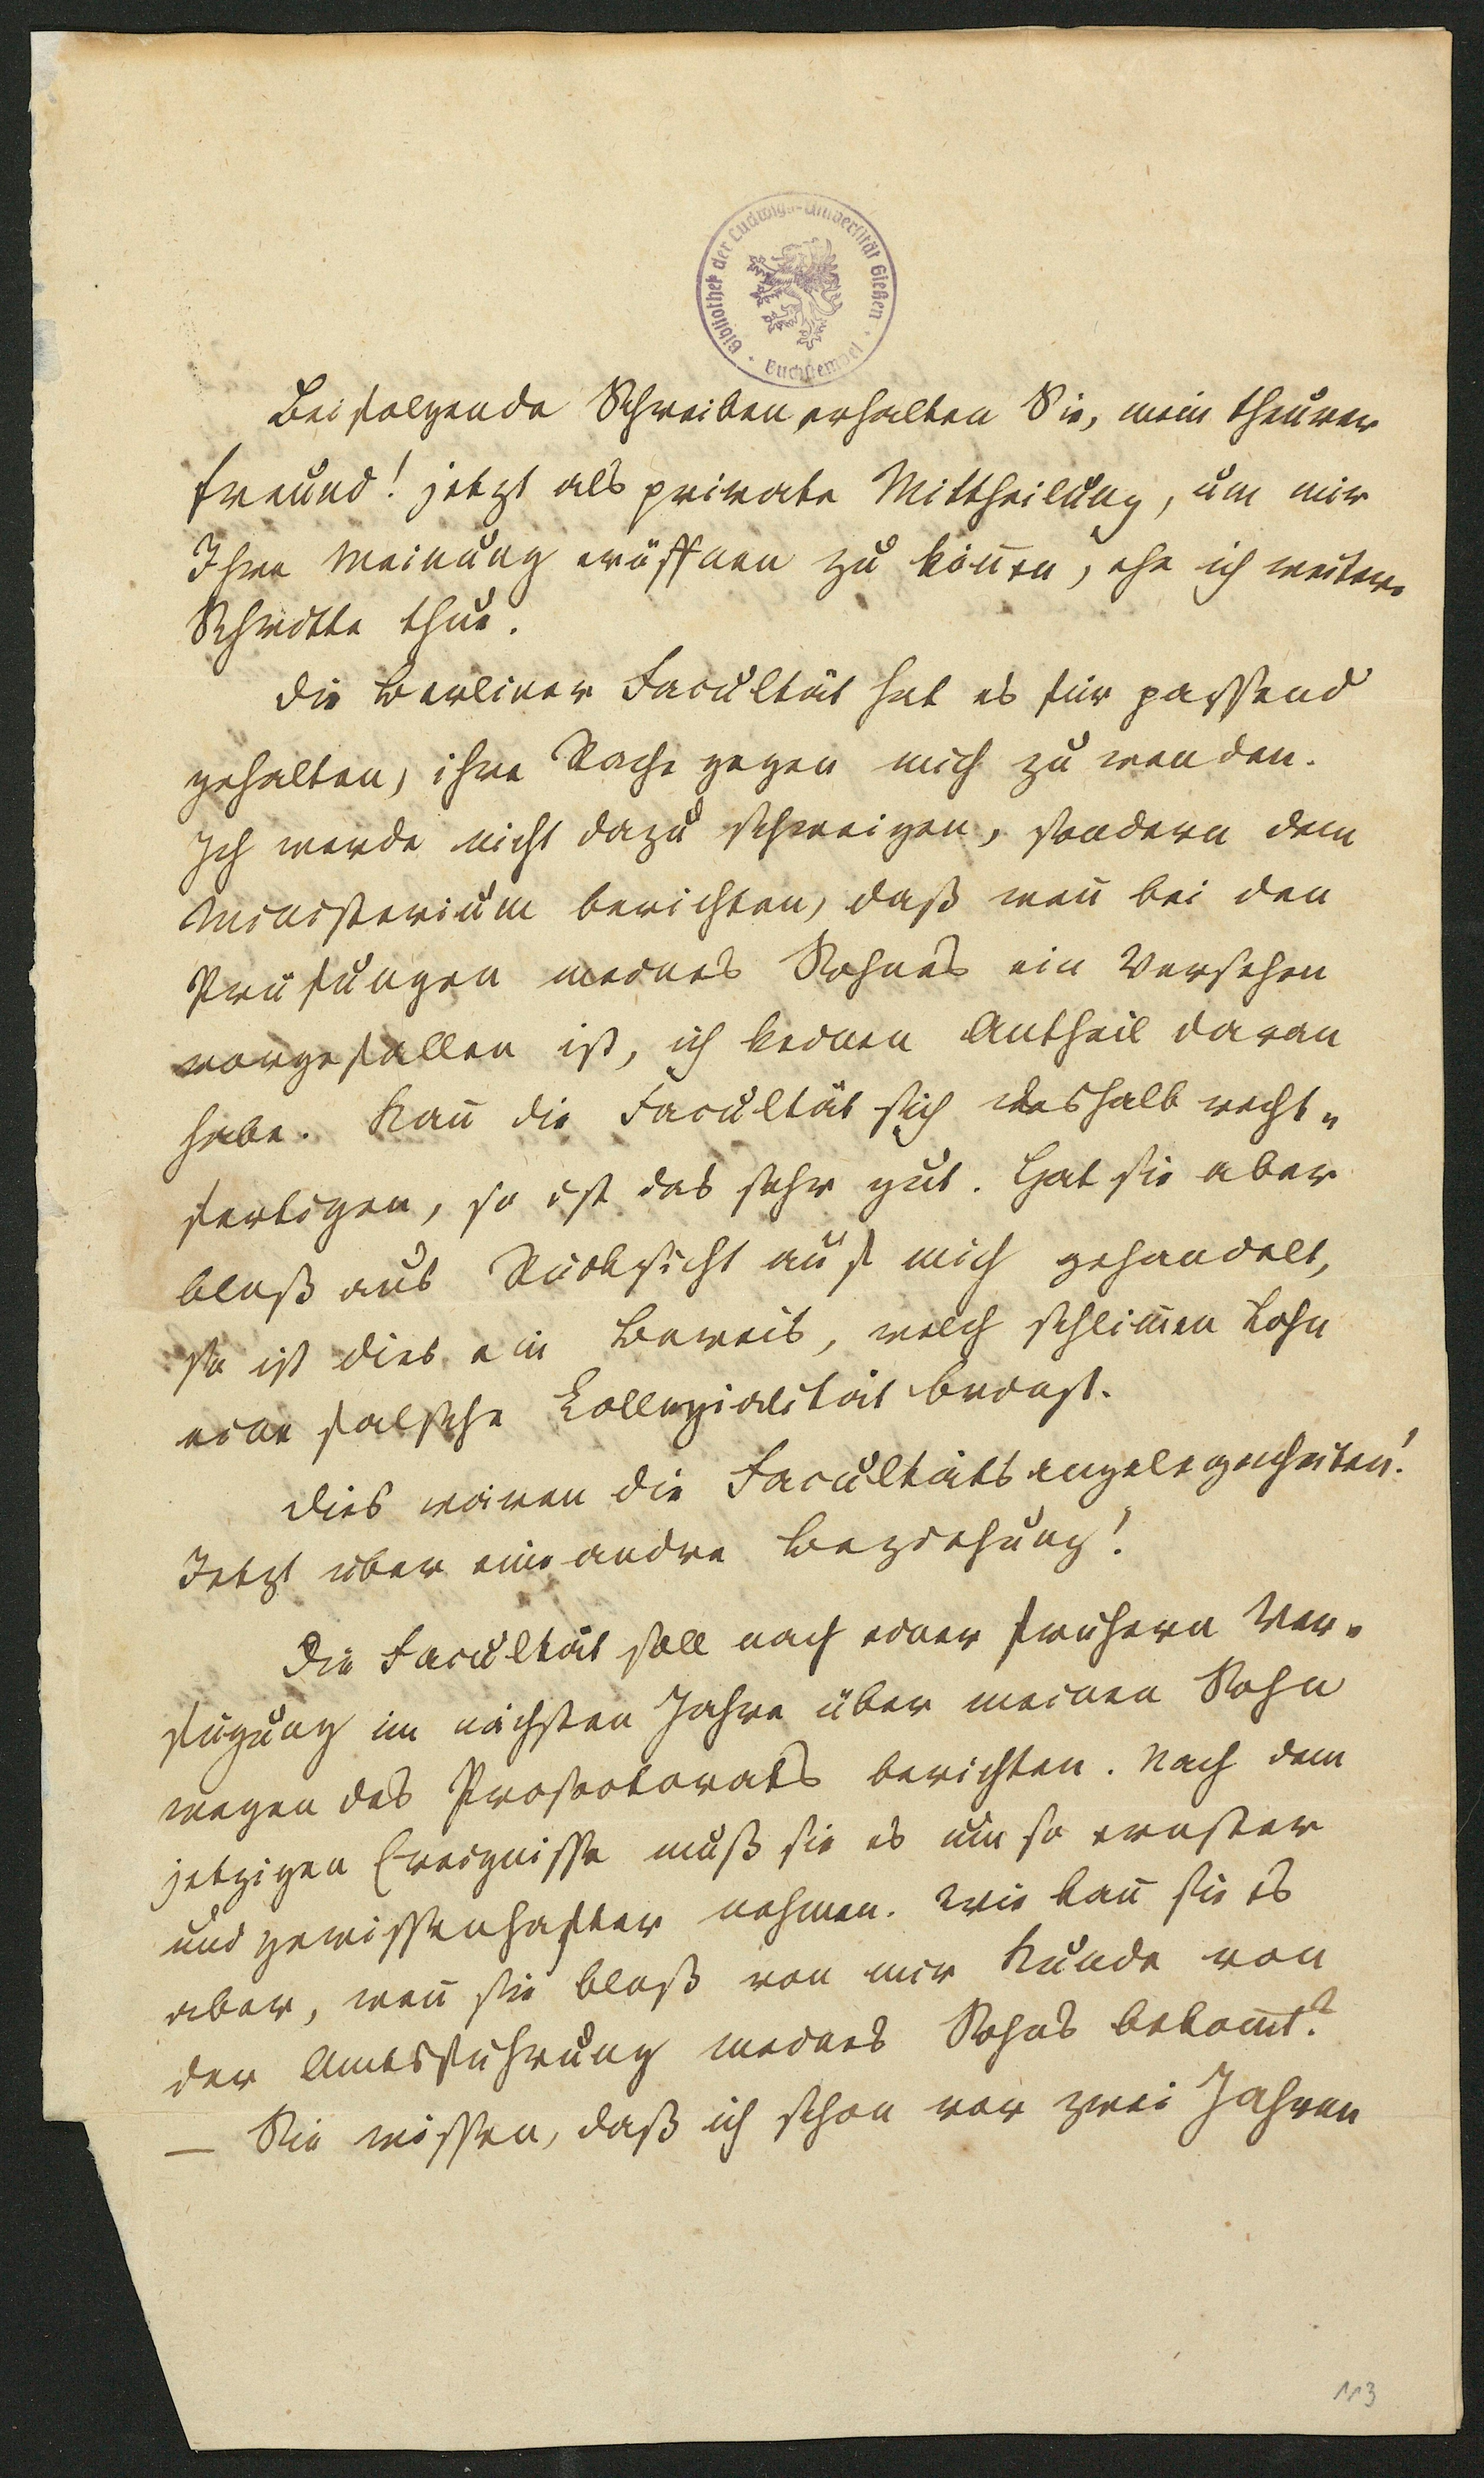 Bibliothek der Ludwigs-Universität Gießen · Buchstempel ·
Beifolgende Schreiben erhalten Sie, mein theurer
Freund! jetzt als private Mittheilung, um mir
Ihre Meinung eröffnen zu kön̅en, ehe ich weitere
Schritte thue.
Die Berliner Facultät hat es für passend
gehalten, ihre Rache gegen mich zu wenden.
Ich werde nicht dazu schweigen, sondern dem
Ministerium berichten, daß wen̅ bei den
Prüfungen meines Sohnes ein Versehen
vorgefallen ist, ich keinen Antheil daran
habe. Kan̅ die Facultät sich deshalb recht„
fertigen, so ist das sehr gut. Hat sie aber
bloß aus Rücksicht auf mich gehandelt,
so ist dies ein Beweis, welch schlim̅en Lohn
eine falsche Collegialität bringt.
Dies wären die Facultätsangelegenheiten!
Jetzt über eine andre Beziehung!
Die Facultät soll nach einer frühern Ver-
fügung im nächsten Jahre über meinen Sohn
wegen des Prosectorats berichten. Nach dem
jetzigen Ereignisse muß sie es um so ernster
und gewissenhafter nehmen. Wie kan̅ sie es
aber, wen̅ sie bloß von mir Kunde von
der Amtsführung meines Sohns bekom̅t?
— Sie wissen, daß ich schon vor zwei Jahren
113